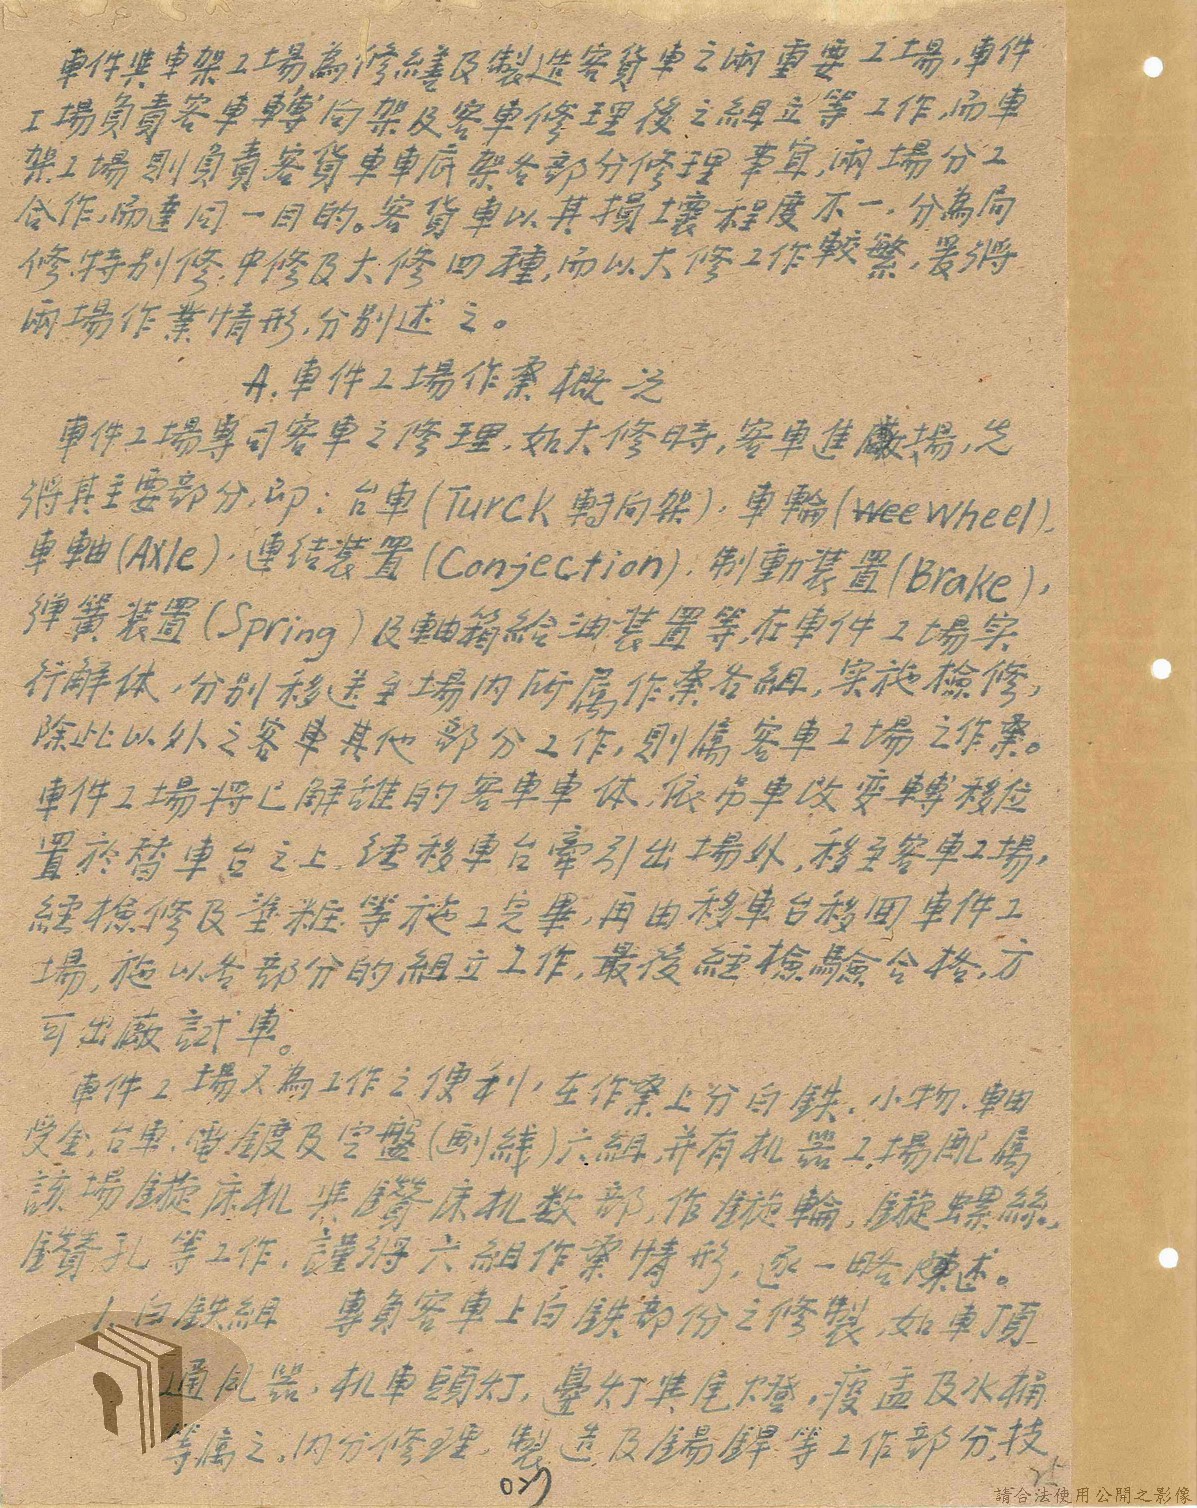 車件與車架工場為修繕及製造客貨車之兩重要工場,車件
工場負責客車轉向架及客車修理後之組立等工作,而車
架工場則負責客貨車車底架各部分修理事宜,兩場分工
合作,而達同一目的。客貨車以其損壞程度不一,分為局
修.特別修.中修及大修四種,而以大修工作較繁,爰將
兩場作業情形,分別述之。
A.車件工場作業概況
車件工場專司客車之修理,如大修時,客車進廠場,先
將其主要部分,即:台車(Turck 轉向架),車輪(wee wheel).
車軸(Axle),連結裝置(Conjection).制動裝置(Brake),
弹簧裝置(Spring)及軸箱給油裝置等,在車件工場实
行解体,分別移送至場内所屬作業各組,实施檢修,
除此以外之客車其他部分工作,則屬客車工場之作業。
車件工場將已解離的客車車体,依吊車改变轉移位
置於替車台之上.經移車台牽引出場外,移至客車工場,
經檢修及塗粧等施工完畢,再由移車台移囬車件工
場,施以各部分的組立工作,最後經檢驗合格,方
可出廠試車。
車件工場又為工作之便利,在作業上分白鉄.小物.軸
受金.台車.電鍍及定盤(劃綫)六組,并有机器工場配屬
該場鏇床机與鑽床机数部,作鏇輪,鏇螺絲,
鑽孔等工作,謹將六組作業情形,逐一略陳述。
1.白鉄組 專負客車上白鉄部份之修製,如車頂
通風器,机車頭灯,邊灯與尾燈,痰盂及水桶
等屬之,内分修理,製造及錫銲等工作部分,技
027
25
請合法使用公開之影像